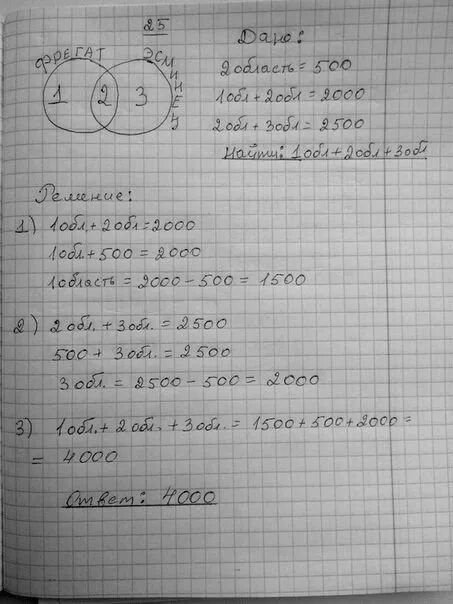 25
ФРЕГАТ
ЭСМИНЕЦ
1 2 3
Дано:
2область = 500
1обл + 2обл = 2000
2обл + 3обл = 2500
Найти: 1обл + 2обл + 3обл
Решение:
1) 1обл. + 2обл = 2000
1обл. + 500 = 2000
1область = 2000 - 500 = 1500
2) 2обл. + 3обл. = 2500
500 + 3обл. = 2500
3обл. = 2500 - 500 = 2000
3) 1обл. + 2обл. + 3обл. = 1500 + 500 + 2000 =
= 4000
Ответ: 4000